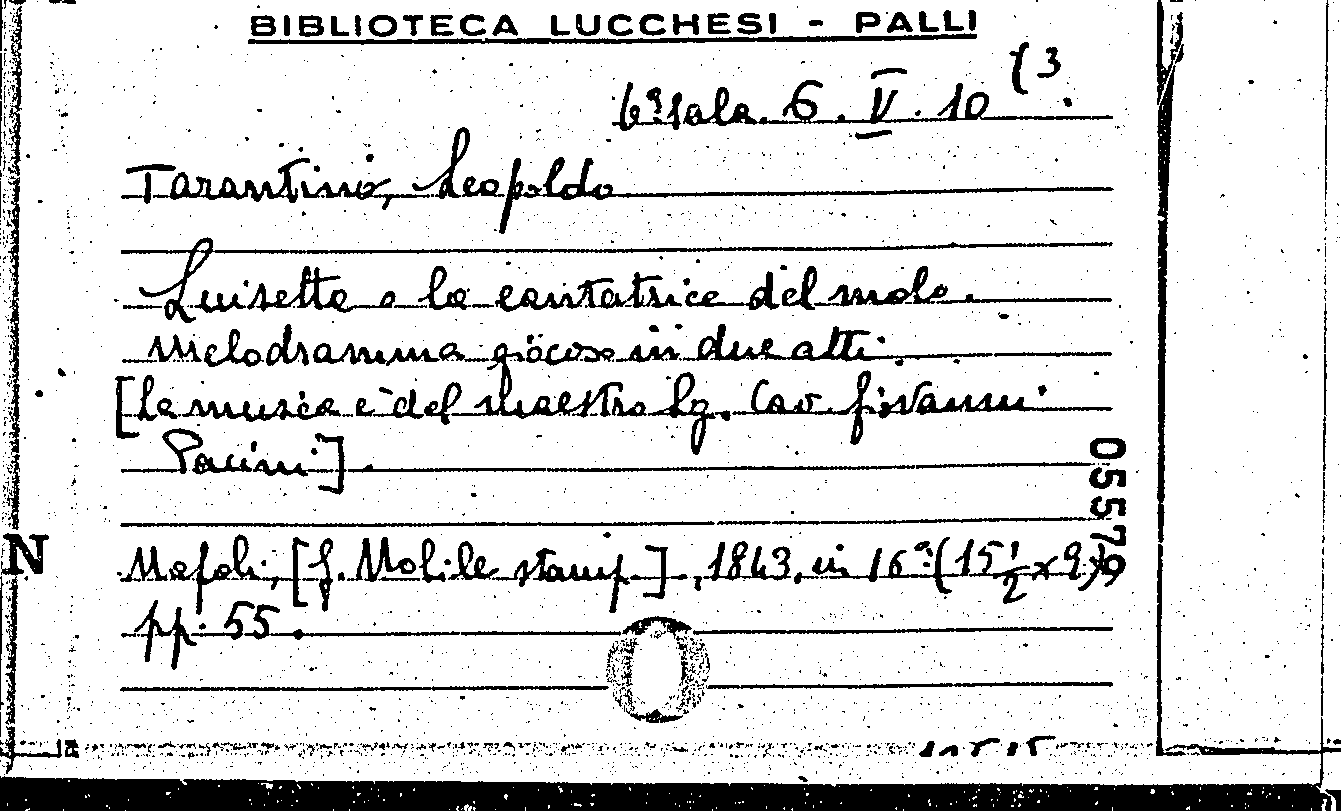 BIBLIOTECA LUCCHESI - PALLI
6ª sala. 6. V. 10 (3.
Tarantino, Leopoldo
Luisetta o la cantatrice del molo.
Melodramma giocoso in due atti.
[La musica è del maestro Sg. Cav. Giovanni
Pacini].
05579
N
Napoli, [G. Nobile stamp.], 1843, in 16º (15 1/2 x 9)
pp. 55.